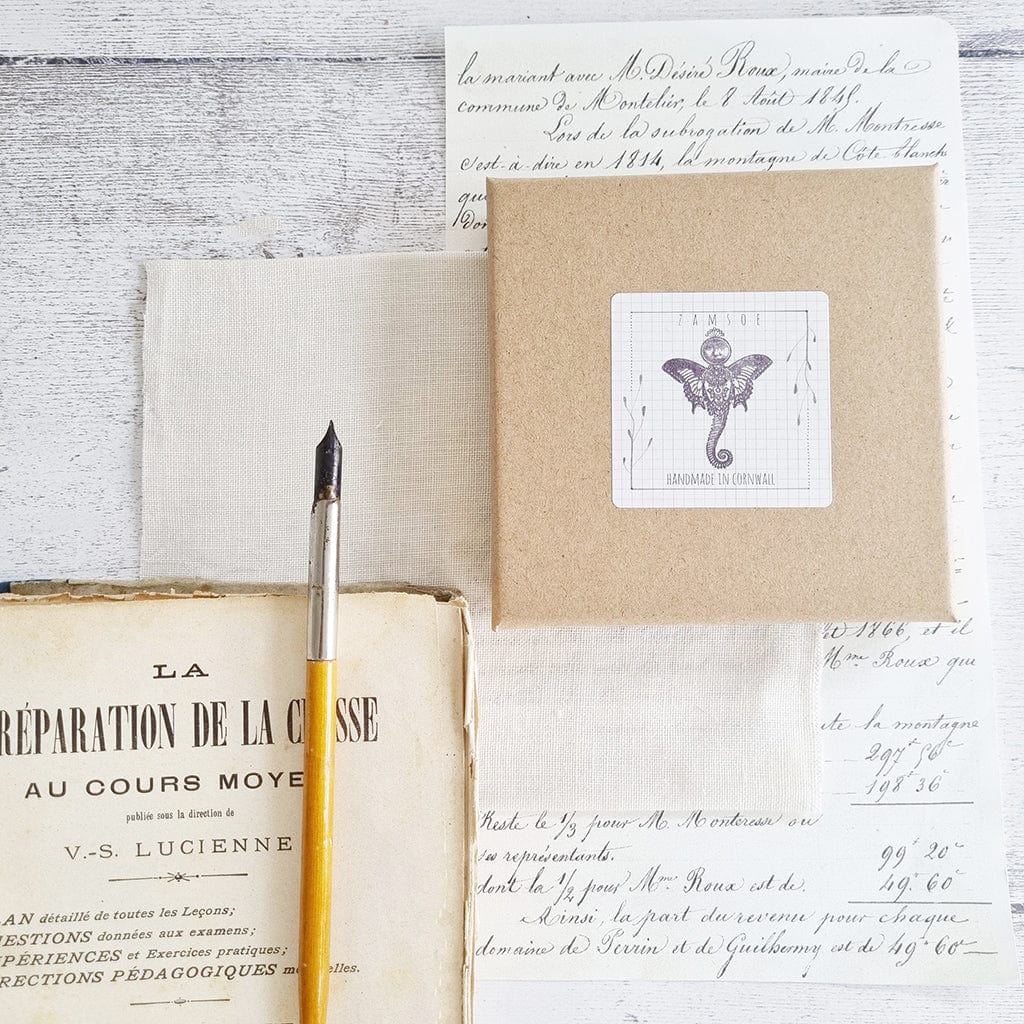 la mariant avec M. Désiré Roux, maire de la
commune de Montelier, le 8 Août 1845.
Lors de la subrogation de M. Montresse
c'est-à-dire en 1814, la montagne de Côte blanche
qu
don
ZAMSOE
HANDMADE IN CORNWALL
et 1866, et il
Mme Roux qui
te la montagne
297f 56c
198f 36c
Reste le 1/3 pour M. Monteresse ou
ses représentants.
99f 20c
dont la 1/2 pour Mme Roux est de.
49f 60c
Ainsi, la part du revenu pour chaque
domaine de Perrin et de Guilhermy est de 49f 60c
LA
RÉPARATION DE LA C SSE
AU COURS MOYE
publiée sous la direction de
V.-S. LUCIENNE
AN détaillé de toutes les Leçons;
ESTIONS données aux examens;
PÉRIENCES et Exercices pratiques;
RECTIONS PÉDAGOGIQUES m elles.